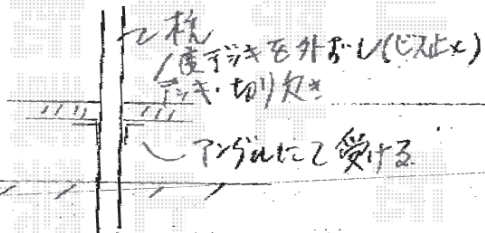 杭
1度デッキを外おし(ビス止メ)
デッキ・切り欠き
アングルにて受ける